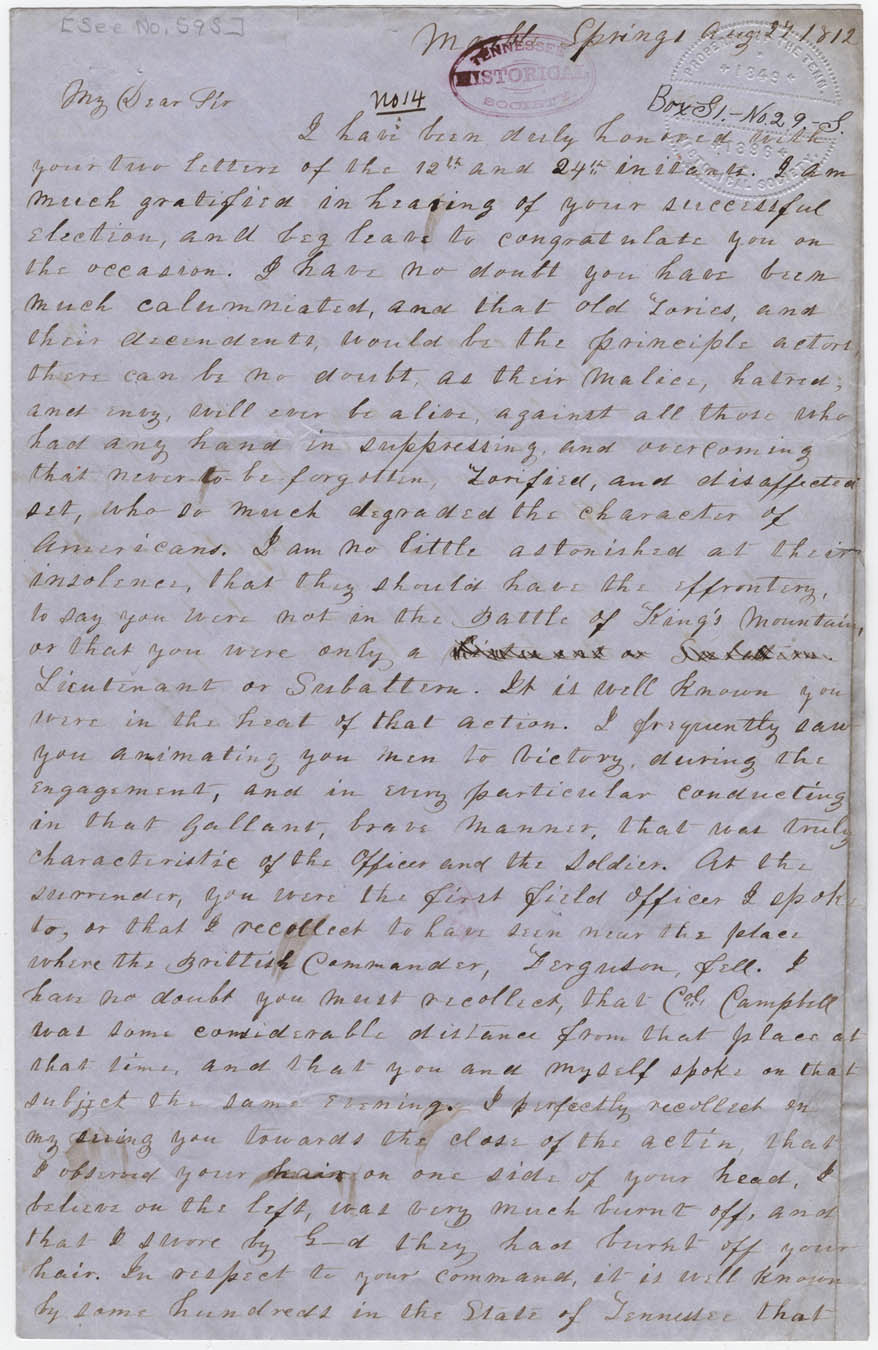 [See No. 595]
Springs Aug 27. 1812
TENNESSEE
HISTORICAL
SOCIETY
PROPERTY OF THE TENN.
1849
HISTORICAL SOCIETY
My Dear Sir
No 14
Box S1.-No. 29-S.
I have been duly honored with
your two letters of the 12th and 24th instants. I am
much gratified in hearing of your successful
election, and beg leave to congratulate you on
the occasion. I have no doubt you have been
much calumniated, and that old Tories, and
their decendents, would be the principle actors,
there can be no doubt, as their malice, hatred,
and envy, will ever be alive, against all those who
had any hand in suppressing, and overcoming
that never-to-be-forgotten, Torified, and disaffected
set, who so much degraded the character of
Americans. I am no little astonished at their
insolence, that they should have the effrontery,
to say you were not in the Battle of King's Mountain,
or that you were only a
Lieutenant or Subaltern. It is well known you
were in the heat of that action. I frequently saw
you animating you men to victory, during the
engagement, and in every particular conducting
in that gallant, brave manner, that was truly
characteristic of the officer and the soldier. At the
surrender, you were the first field officer I spoke
to, or that I recollect to have seen near the place
where the Brittish Commander, Ferguson, fell. I
have no doubt you must recollect, that Col. Campbell
was some considerable distance from that place at
that time, and that you and myself spoke on that
subject the same evening. I perfectly recollect on
my seeing you towards the close of the actin, that
I observed your hair on one side of your head, I
believe on the left, was very much burnt off, and
that I swore by G-d they had burnt off your
hair. In respect to your command, it is well known
by some hundreds in the State of Tennessee that